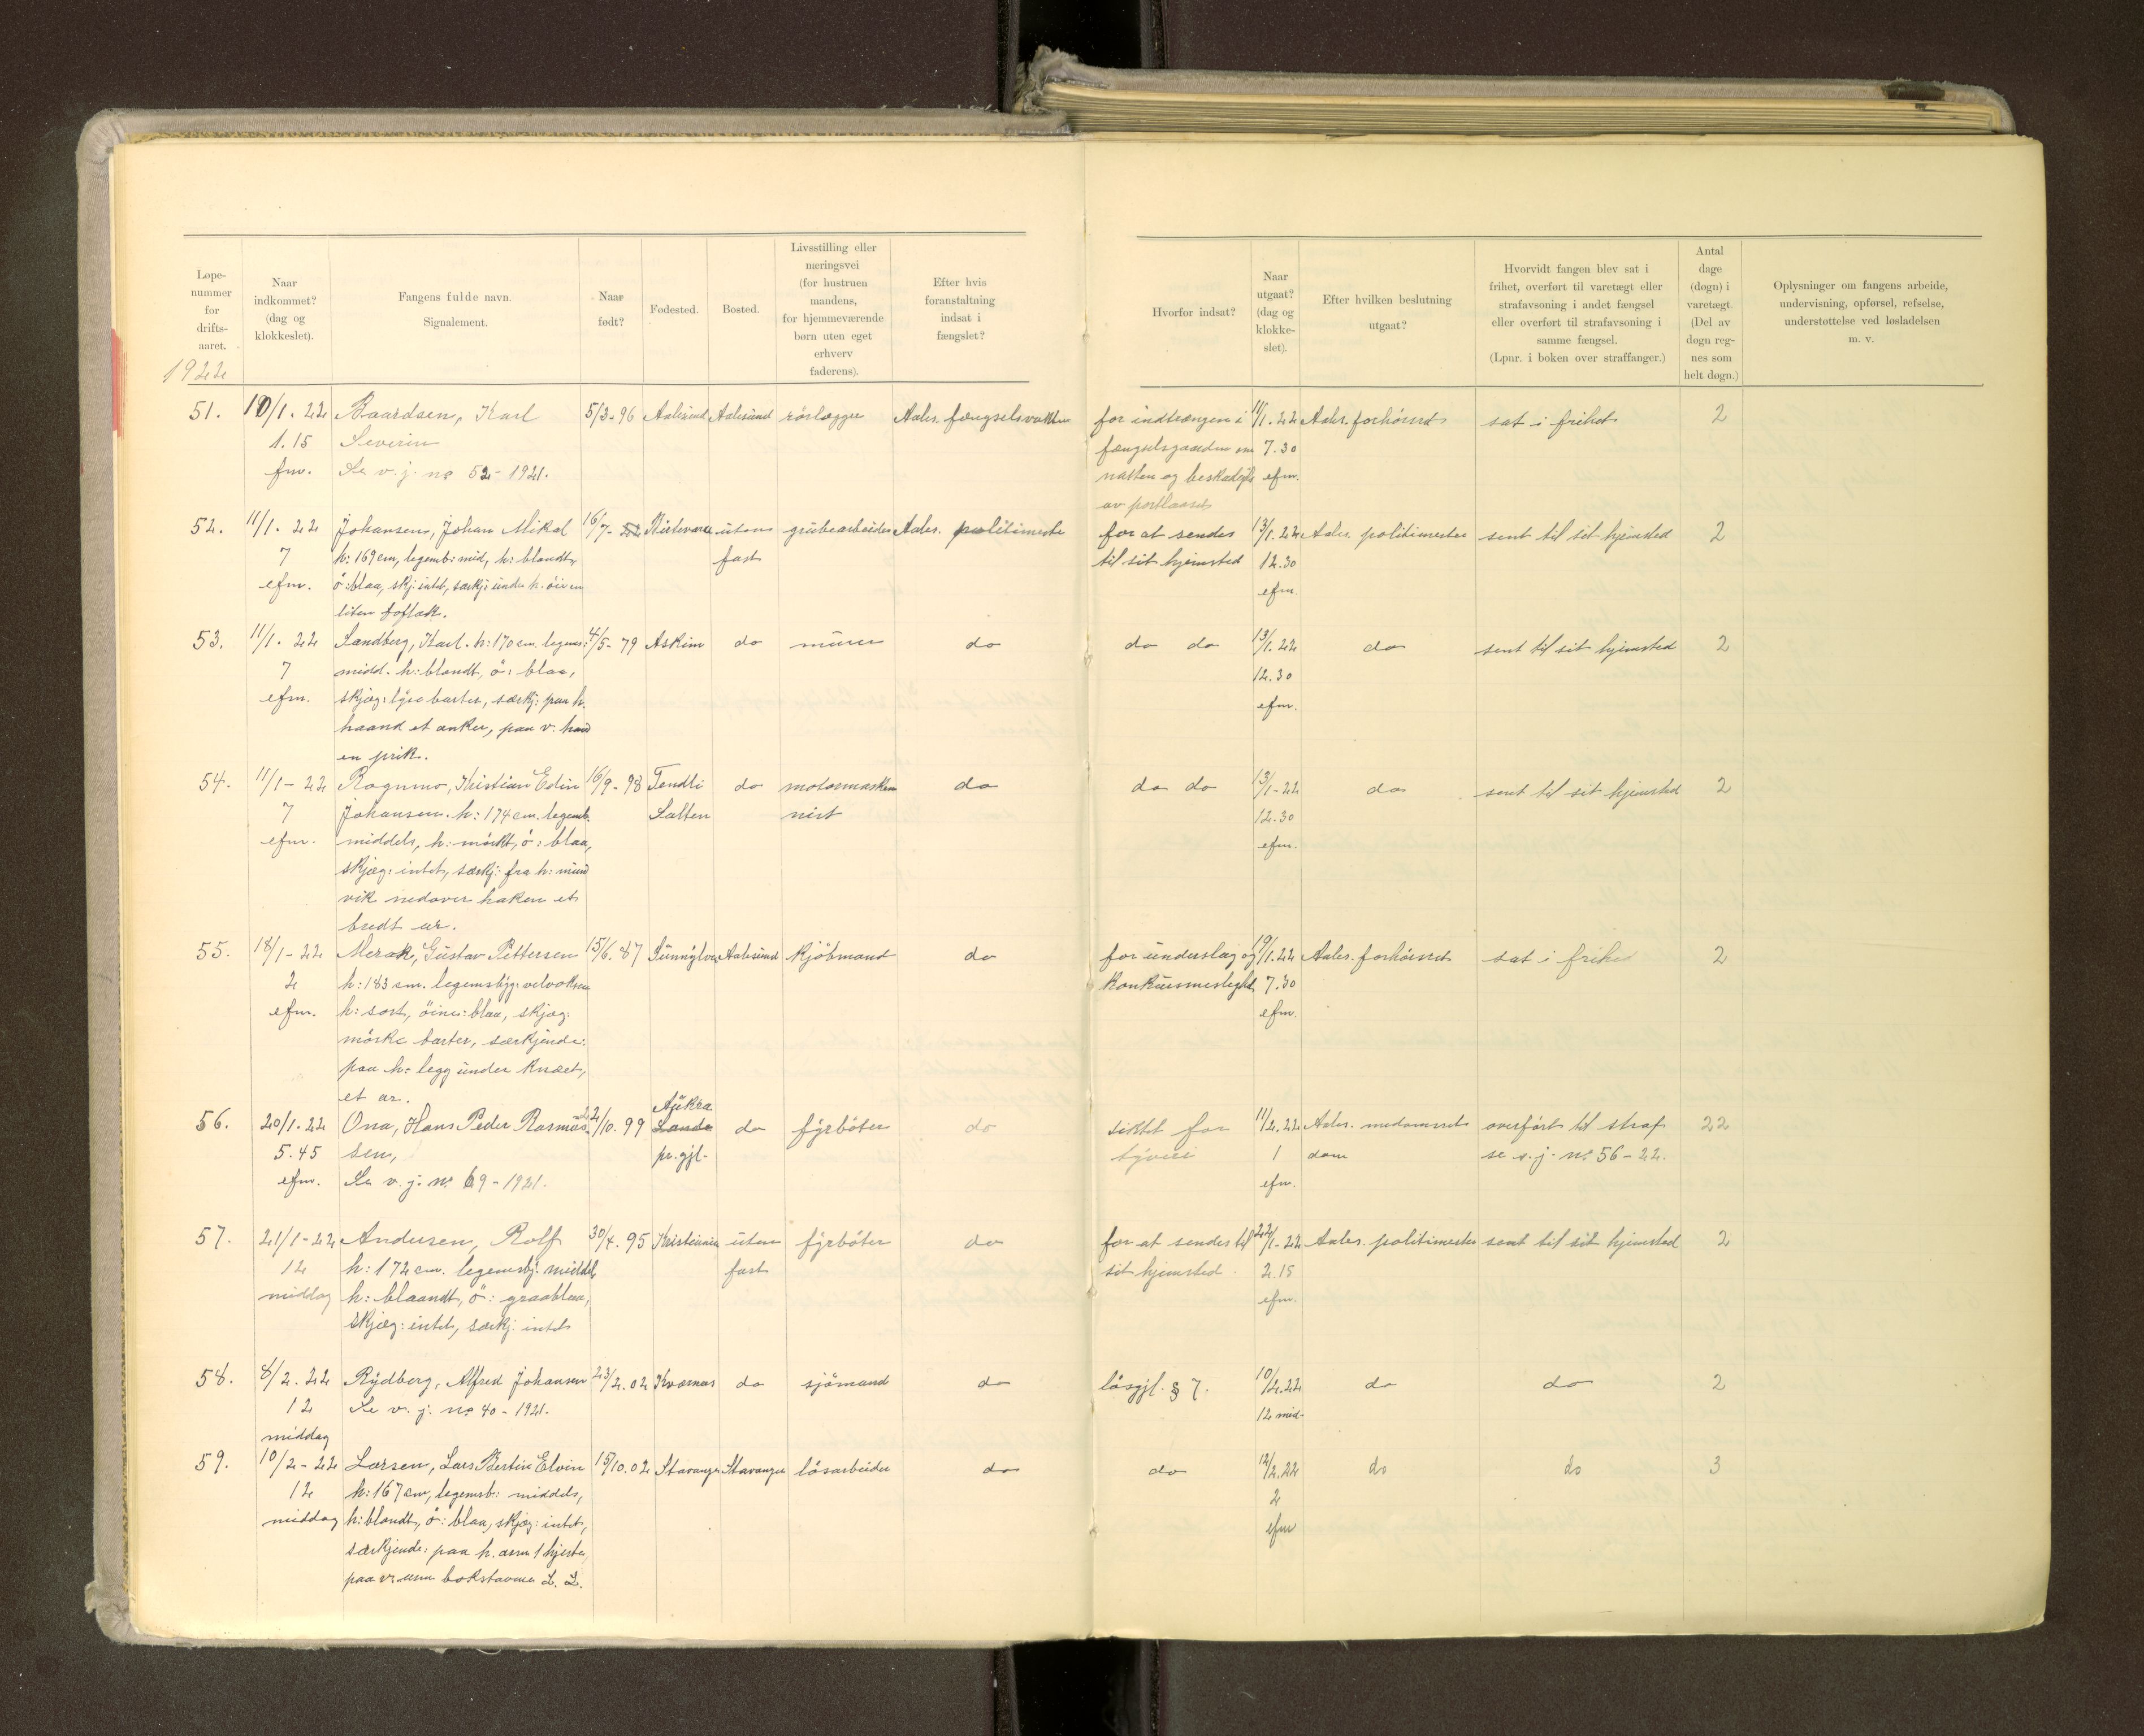 Løpe-
nummer
for
drifts-
aaret.
Naar
indkommet?
(dag og
klokkeslet).
Fangens fulde navn.
Signalement.
Naar
født?
Fødested.
Bosted.
Livsstilling eller
næringsvei
(for hustruen
mandens,
for hjemmeværende
børn uten eget
erhverv
faderens).
Efter hvis
foranstaltning
indsat i
fængslet?
Hvorfor indsat?
Naar
utgaat?
(dag og
klokke-
slet).
Efter hvilken beslutning
utgaat?
Hvorvidt fangen blev sat i
frihet, overført til varetægt eller
strafavsoning i andet fængsel
eller overført til strafavsoning i
samme fængsel.
(Lpnr. i boken over straffanger.)
Antal
dage
(døgn) i
varetægt.
(Del av
døgn reg-
nes som
helt døgn.)
Oplysninger om fangens arbeide,
undervisning, opførsel, refselse,
understøttelse ved løsladelsen
m. v.
1922
51. 10/1. 22 Baardsen, Karl 5/3-96 Aalesund Aalesund rörlægger Aales. fængselsvakten for indtrængen i 11/1. 22 Aales. forhörsret sat i frihet 2
1.15 Severin fængselsgaarden om 7.30
fm. Se v. j. no 52-1921. natten og beskadigelse efm.
av portlaaset
52. 11/1. 22 Johansen, Johan Mikal 16/7- uten grubearbeider Aales. politimester for at sendes 13/1. 22 Aales. politimester sent til sit hjemsted 2
7 h: 169 cm, legemb: mid, h: blondt, fast til sit hjemsted 12.30
efm. ö: blaa, skj: intet, særkj: under h. öie en efm.
liten
53. 11/1. 22 Sandberg, Karl. h: 170 cm. legems: 4/5- 79 Askim do murer do do do 13/1. 22 do sent til sit hjemsted 2
7 midd. h: blondt, ö: blaa, 12.30
efm. skjæg: lyse barter, særkj: paa h. efm.
haand et anker, paa v. haand
en prik.
54. 11/1-22 Rognmo, Kristian Edin 16/9-98 Tendli do motormaskin do do do 13/1-22 do sent til sit hjemsted 2
7 Johansen. h: 174 cm. legemb. Salten nist 12.30
efm. middels, h: mörkt, ö: blaa, efm.
skjæg: intet, særkj: fra h: mund
vik nedover haken et
bredt ar.
55. 18/1-22 Merok, Gustav Pettersen 15/6. 87 Sunnylven Aalesund kjöbmand do for underslag og 19/1. 22 Aales. forhörsret sat i frihet 2
2 h: 183 cm. legemsbyg: velvoksen 7.30
efm. h: sort, öine: blaa, skjæg: efm.
mörke barter, særkjende:
paa h: legg under knæet,
et ar.
Aukra
56. 20/1. 22 Ona, Hans Peder Rasmus- 22/10. 99 Sande do fyrböter do siktet for 11/2. 22 Aales. medomsrets overfört til straf 22
5.45 sen, pr. gjl. tyveri 1 dom se s. j. no 56-22.
efm. Se v. j. no 69-1921. efm.
57. 21/1-22 Andersen, Rolf 30/4. 95 Kristiania uten fyrböter do for at sendes til 22/1-22 Aales. politimester sent til sit hjemsted 2
12 h: 172 cm. legemsbj: middels fast sit hjemsted. 2.15
middag h: blaandt, ö: graablaa, efm.
skjæg: intet, særkj: intet
58. 8/2. 22 Rydberg, Alfred Johansen 23/2. 02 Kvernes do sjömand do lösgjl. § 7. 10/2. 22 do do 2
12 Se v. j. no 40-1921. 12 mid-
middag
59. 10/2-22 Larsen, Lars Bertin Elvin 15/10. 02 Stavanger Stavanger lösarbeider do do 12/2. 22 do do 3
12 h: 167 cm, legemsb: middels, 2
middag h: blondt, ö: blaa, skjæg: intet, efm
særkjende: paa h. arm 1 hjerte,
paa v: arm bokstavene L. L.